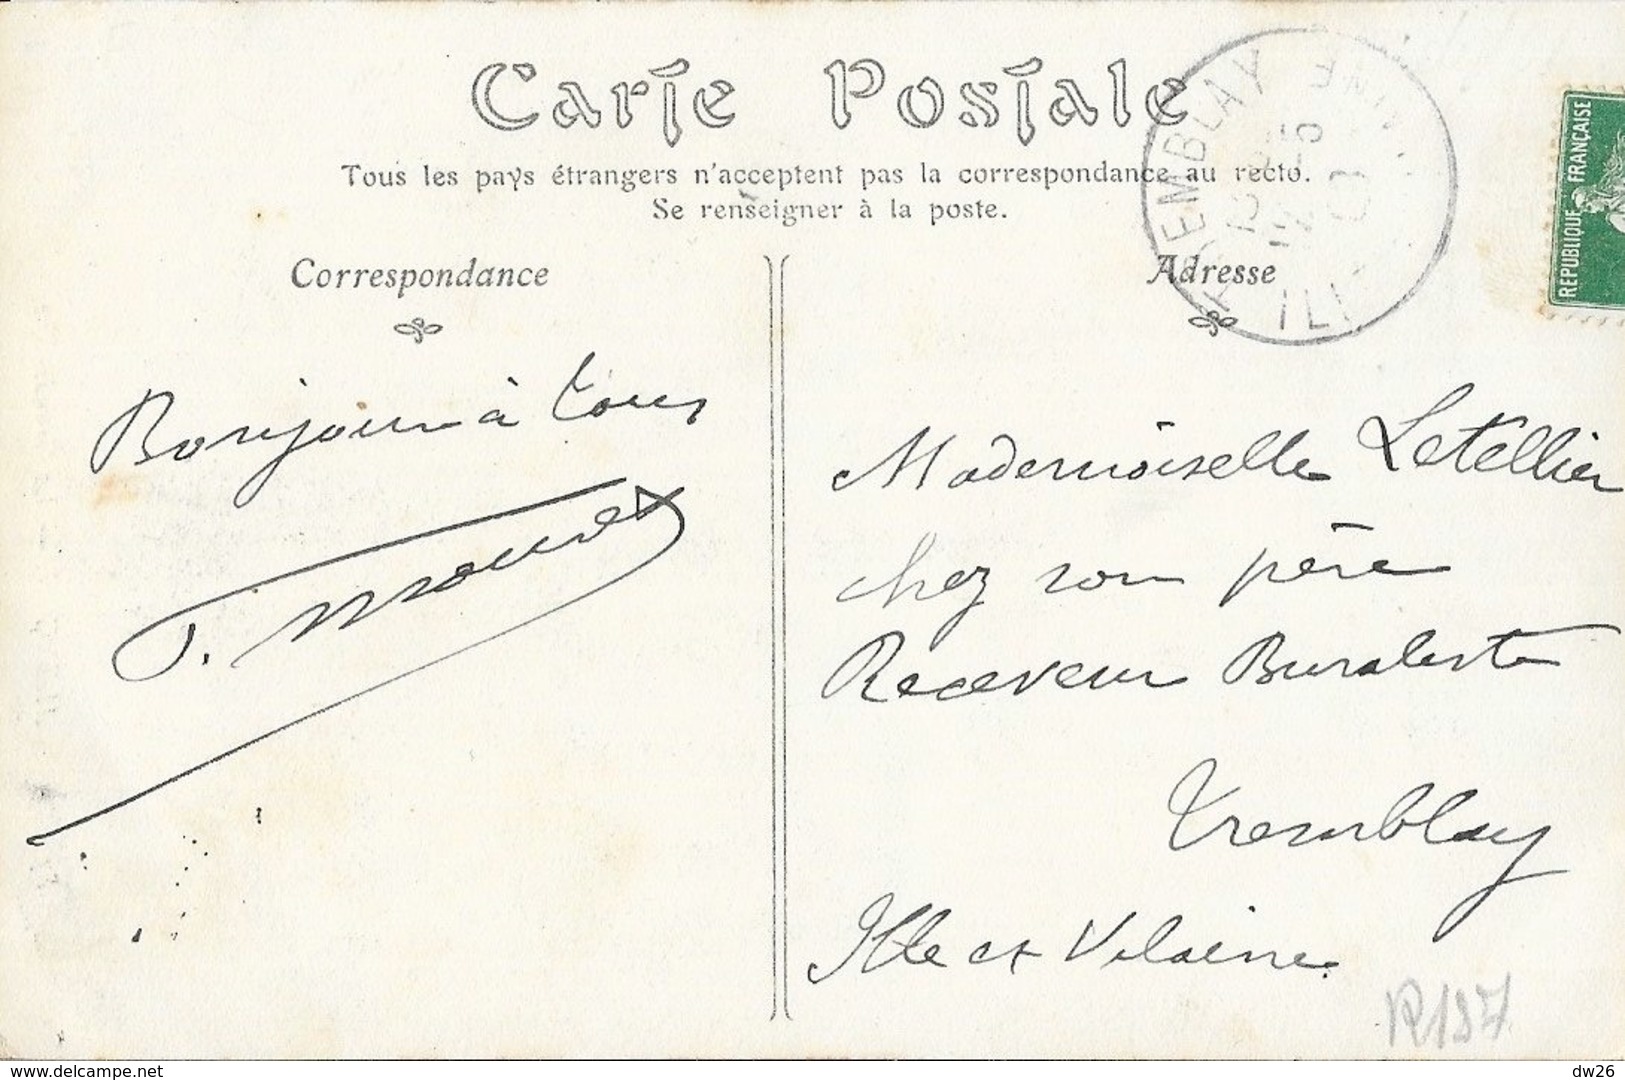 Carte Postale
Tous les pays étrangers n'acceptent pas la correspondance au recto.
Se renseigner à la poste.
Correspondance
Adresse
TREMBLAY
REPUBLIQUE FRANÇAISE
Bonjour à tous
Mademoiselle Letellier
chez son père
Receveur Buraliste
Tremblay
Ille et Vilaine
R197
delcampe.net
dw26